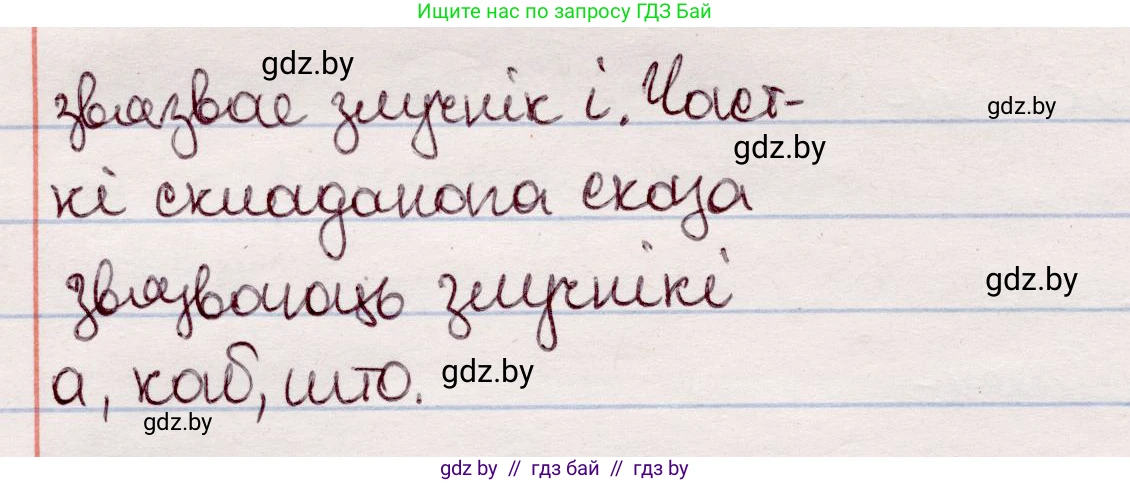 Ищите нас по запросу ГДЗ Бай
gdz.by
звязвае злучнік і. Част-
gdz.by
gdz.by
кі складанага сказа
звязваюць злучнікі
gdz.by
а, каб, што.
gdz.by
gdz.by
gdz by // гдз бай // гдз by